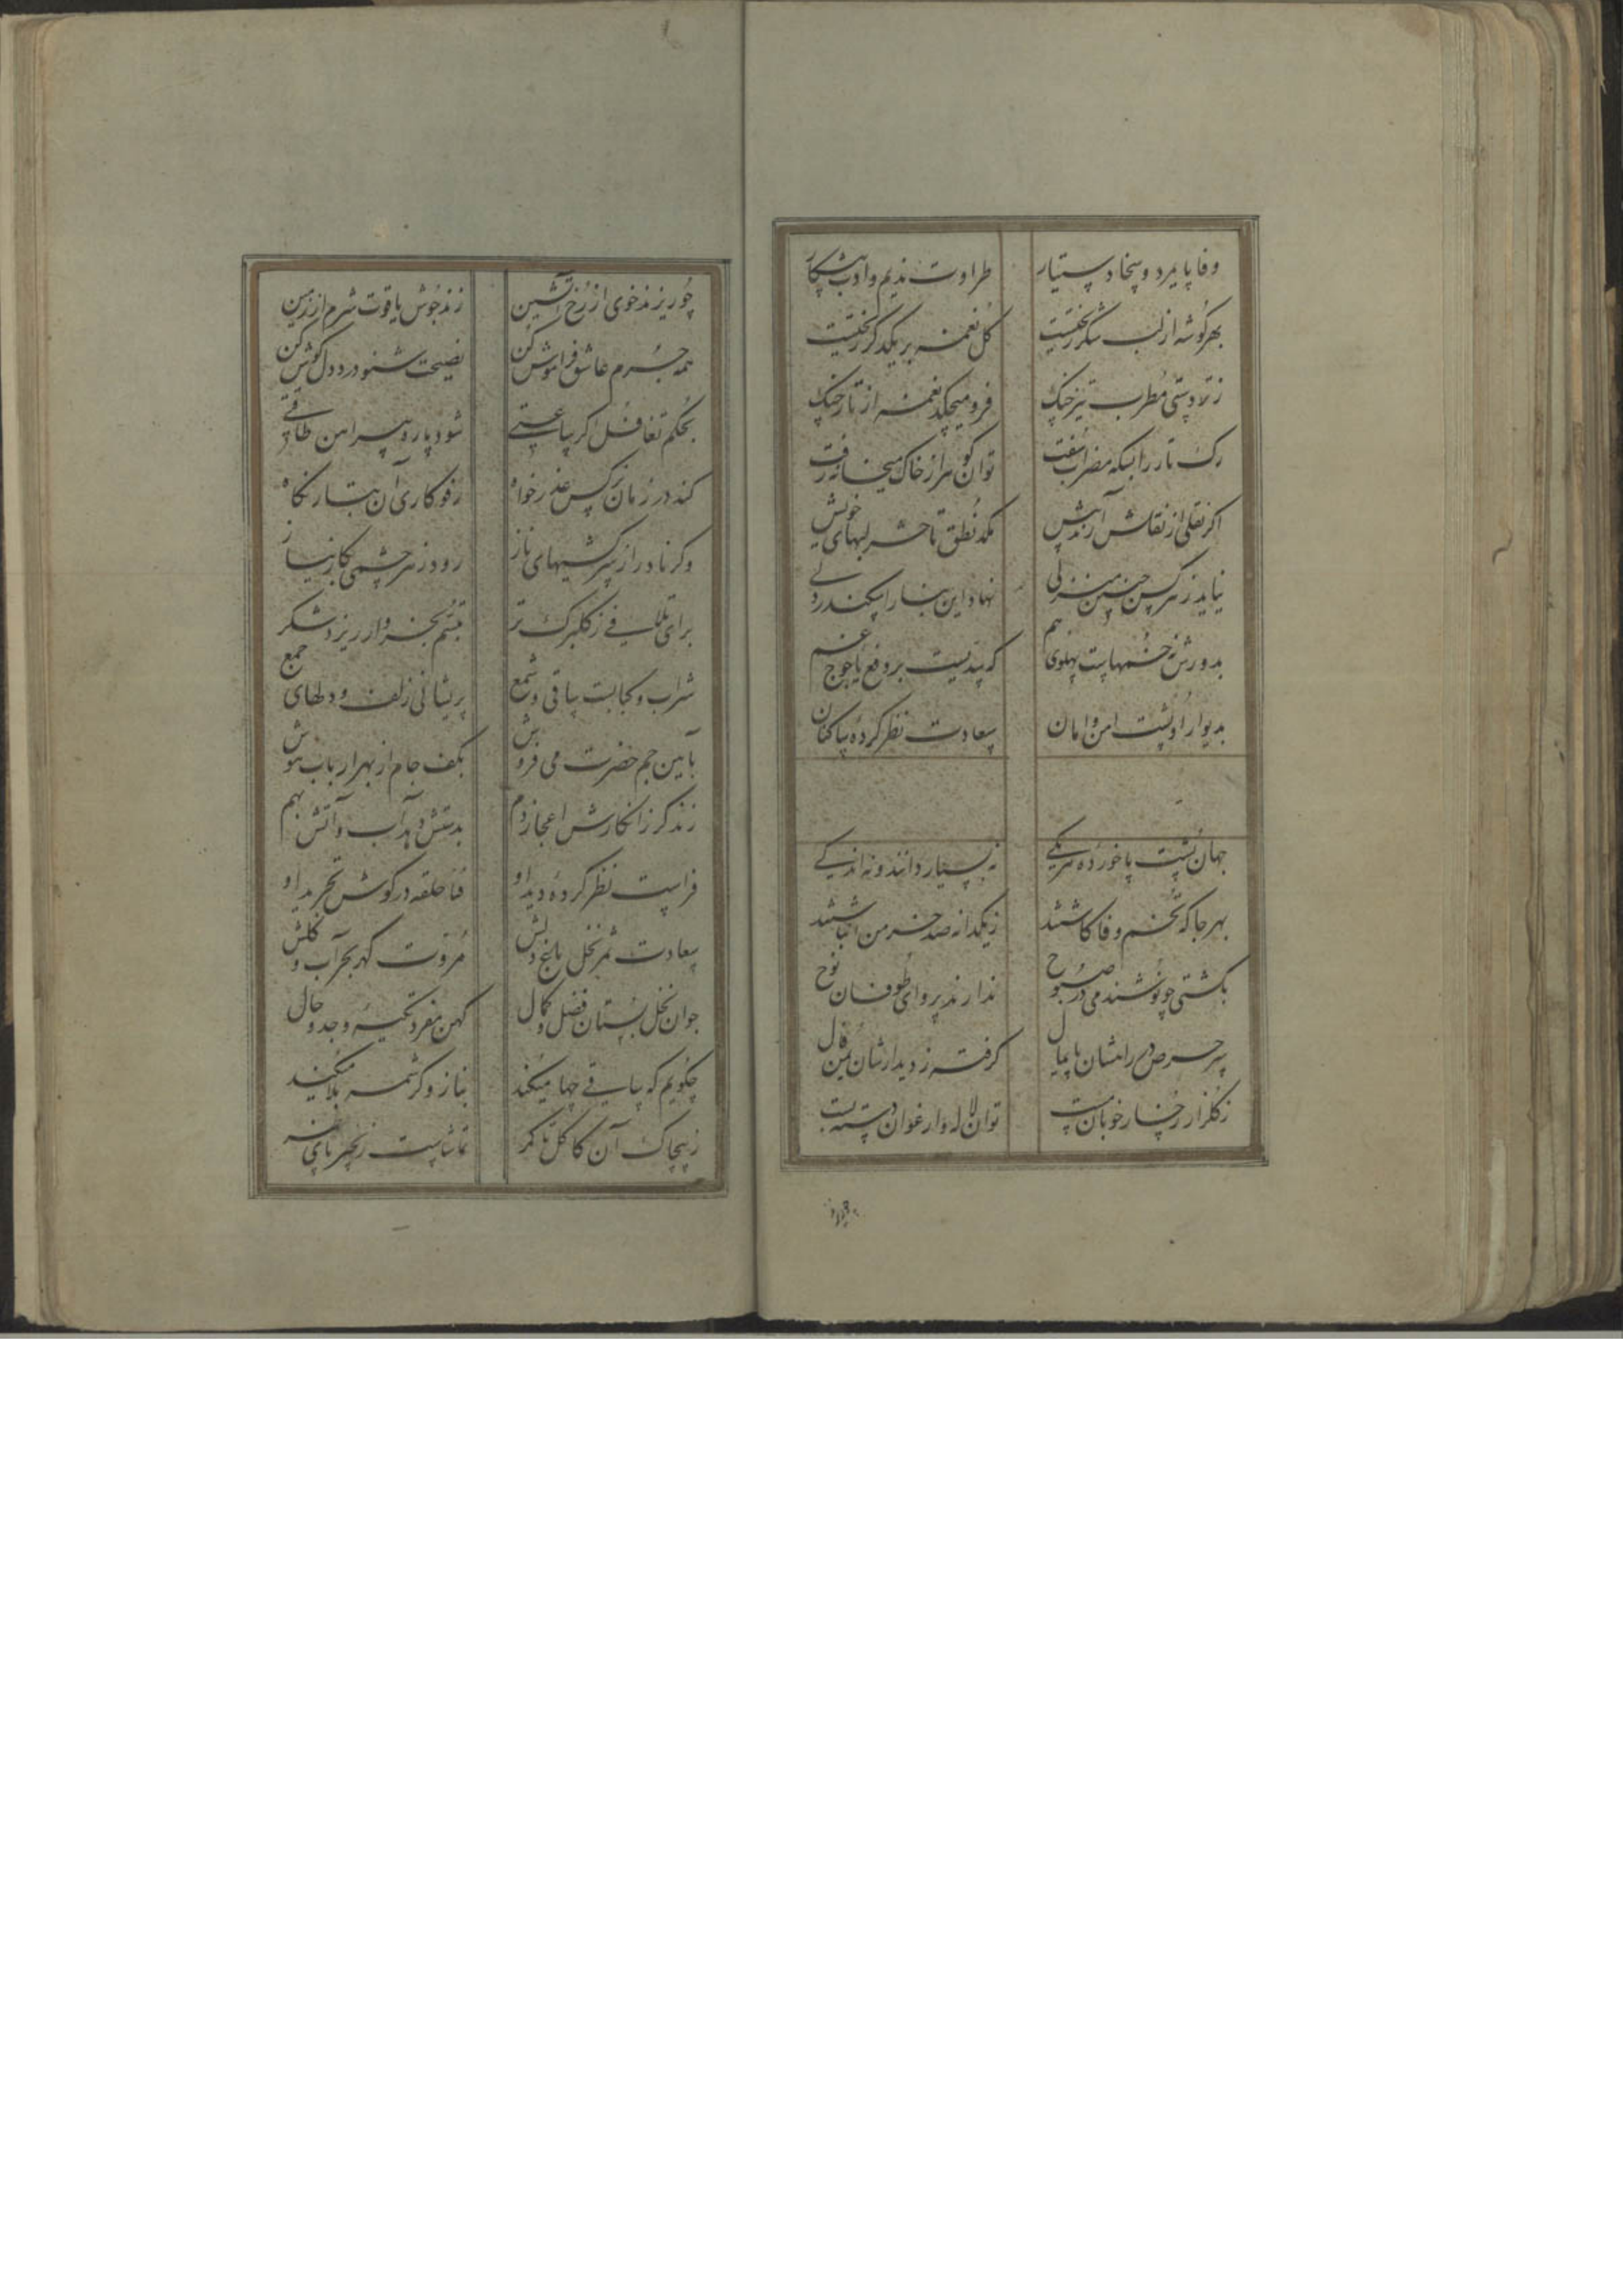 وفا پایمرد و سخا دستیار
طراوت ندیم و ادب پیشکار
بهر گوشه از لب شکر ریختست
گل نغمه بر یکدگر ریختست
ز تردستی مطرب تیز چنک
فرو میچکد نغمه از تار چنک
رک تار را بسکه مضراب سفت
توان گوهر از خاک میخانه رفت
اگر نقلی از نقلش آرند پیش
مکد نطق تا حشر لبهای خویش
نیاید ز هر کس چنین منزلی
نهاد این بنا را سکندر دلی
بدورش نه خمهاست پهلوی هم
که سدیست بر دفع یاجوج غم
بدیوار او پشت امن و امان
سعادت نظر کرده ساکنان
جهان پشت پا خورده هر یکی
نه بسیار دانند و نه اندکی
بهر جا که تخم وفا کاشتند
ز یکدانه صد خرمن انباشتند
بکشتی چو نوشند می در صبوح
ندارند پروای طوفان نوح
سر حرص در راهشان پایمال
گرفته ز دیدارشان یمن فال
ز گلزار رخسار خوبان مست
توان لاله و ارغوان دسته بست
چو ریزند خوی از رخ آتشین
زند جوش یاقوت شرم از زمین
همه جرم عاشق فراموش کن
نصیحت شنو درد دل گوش کن
بحکم تغافل اگر ساعتی
شود پاره پیراهن طاقتی
کند در زمان نرکس عذر خواه
رفو کاری آن بتار نگاه
وگر نادر از سرکشیهای ناز
رود زهر چشمی بکار نیاز
برای تلافی ز گلبرک تر
تبسم بخروار ریزد شکر
شراب و کبابست و ساقی و شمع
پریشانی زلف و دلهای جمع
بآیین جم حضرت می فروش
بکف جام از بهر ارباب هوش
زند گر ز انکارش اعجاز دم
بدستش دهد آب و آتش بهم
فراست نظر کرده دید او
فنا حلقه در گوش تجرید او
سعادت ثمر نخل باغ دلش
مروت گهر بحر آب و گلش
جوان نخل بستان فضل و کمال
کهن منفرد تکیه وجد و حال
چگویم که ساقی چها میکند
بناز و کرشمه بلا میکند
ز پیچاک آن کاکل تا کمر
تماشاست زنجیر پای نظر